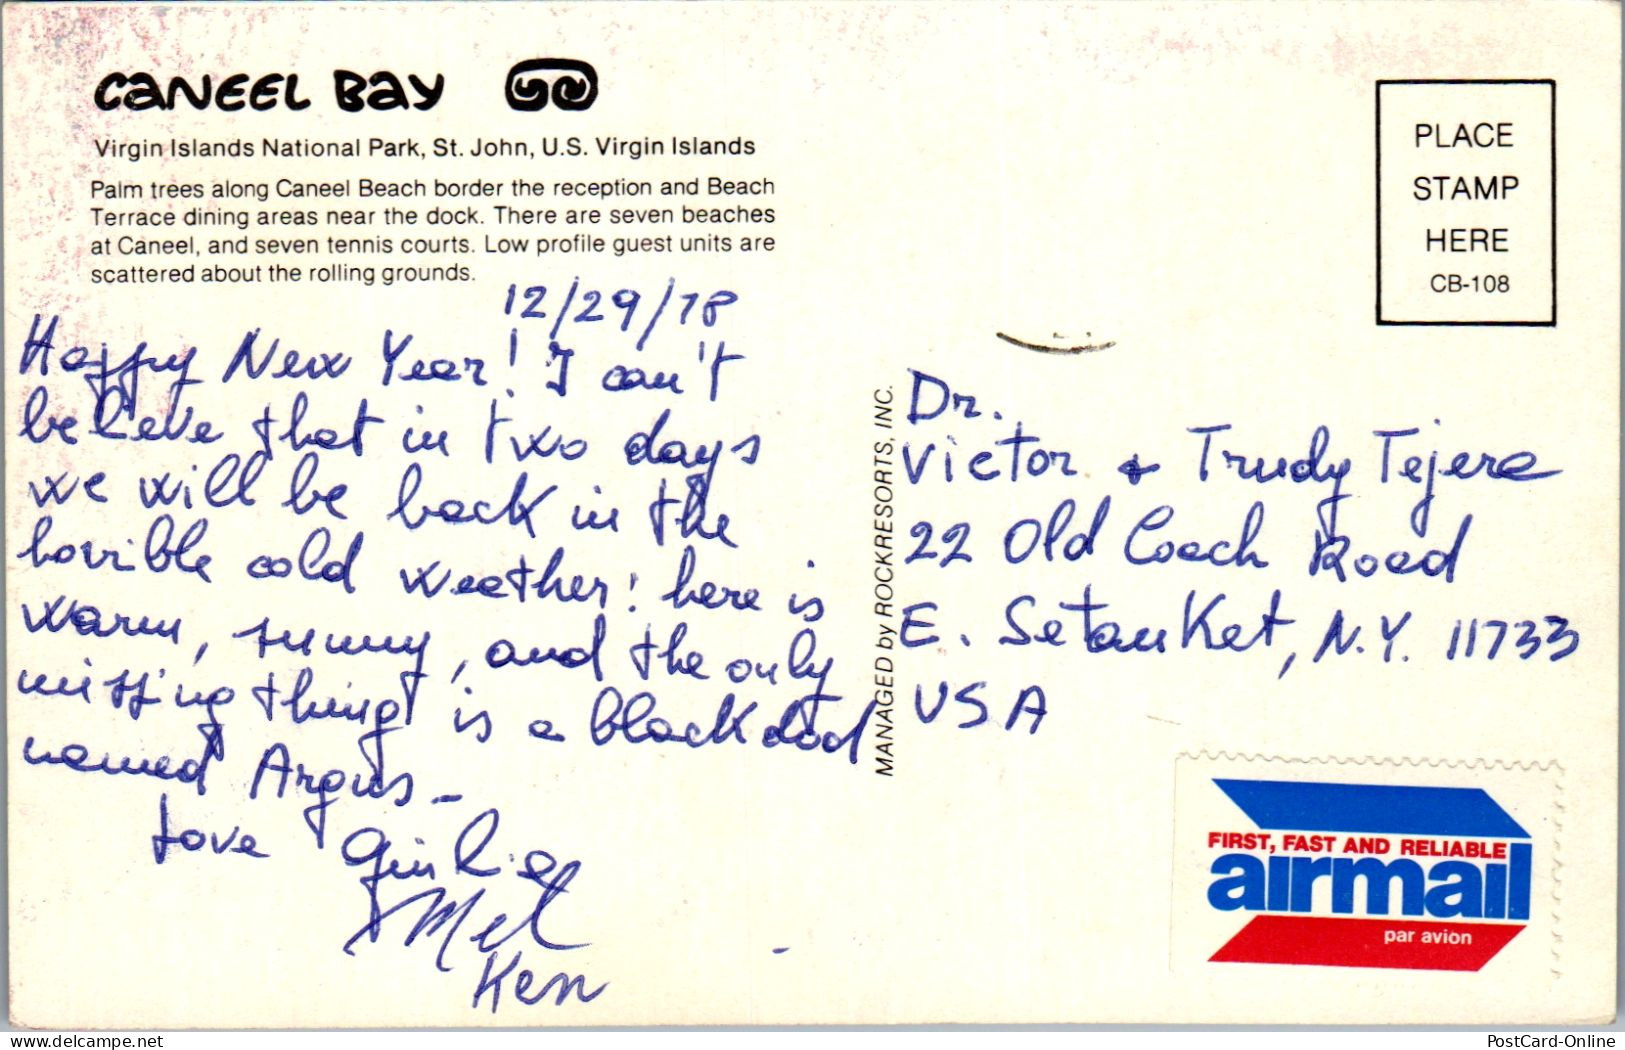 CANEEL BAY
Virgin Islands National Park, St. John, U.S. Virgin Islands
Palm trees along Caneel Beach border the reception and Beach
Terrace dining areas near the dock. There are seven beaches
at Caneel, and seven tennis courts. Low profile guest units are
scattered about the rolling grounds.
12/29/78
Happy New Year! I can't
believe that in two days
we will be back in the
horrible cold weather! here is
warm, sunny, and the only
missing thing is a black dod
named Argus -
Love Giulia
Mel
Ken
MANAGED by ROCKRESORTS, INC.
PLACE
STAMP
HERE
CB-108
Dr.
Victor + Trudy Tejera
22 Old Coach Road
E. Setauket, N.Y. 11733
USA
FIRST, FAST AND RELIABLE
airmail
par avion
www.delcampe.net
PostCard-Online